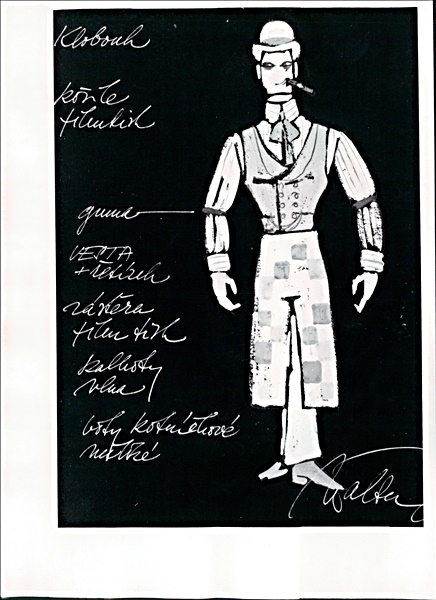 Klobouk
košile
filmtisk
guma
VESTA
+ řetízek
zástěra
film tisk
kalhoty
vlna
boty kotníčkové
měkké
Walter